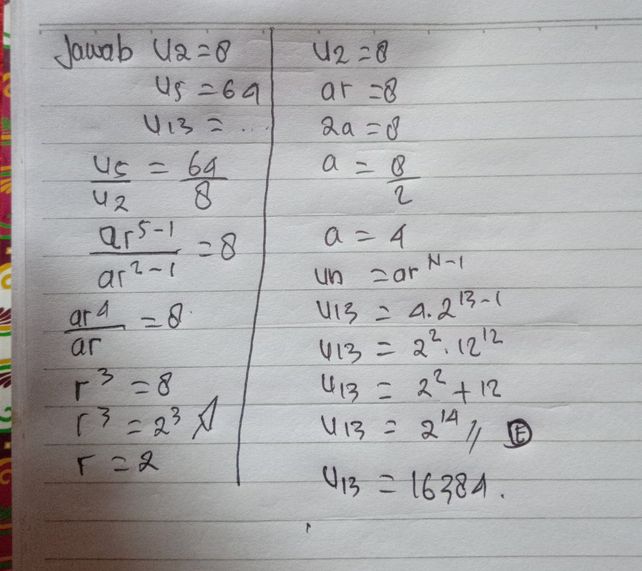 Jawab U2 = 8
U5 = 64
U13 = ...
U5/U2 = 64/8
ar^5-1/ar^2-1 = 8
ar^4/ar = 8
r^3 = 8
r^3 = 2^3
r = 2
U2 = 8
ar = 8
2a = 8
a = 8/2
a = 4
Un = ar^N-1
U13 = 4.2^13-1
U13 = 2^2.12^12
U13 = 2^2 + 12
U13 = 2^14 // E
U13 = 16384.